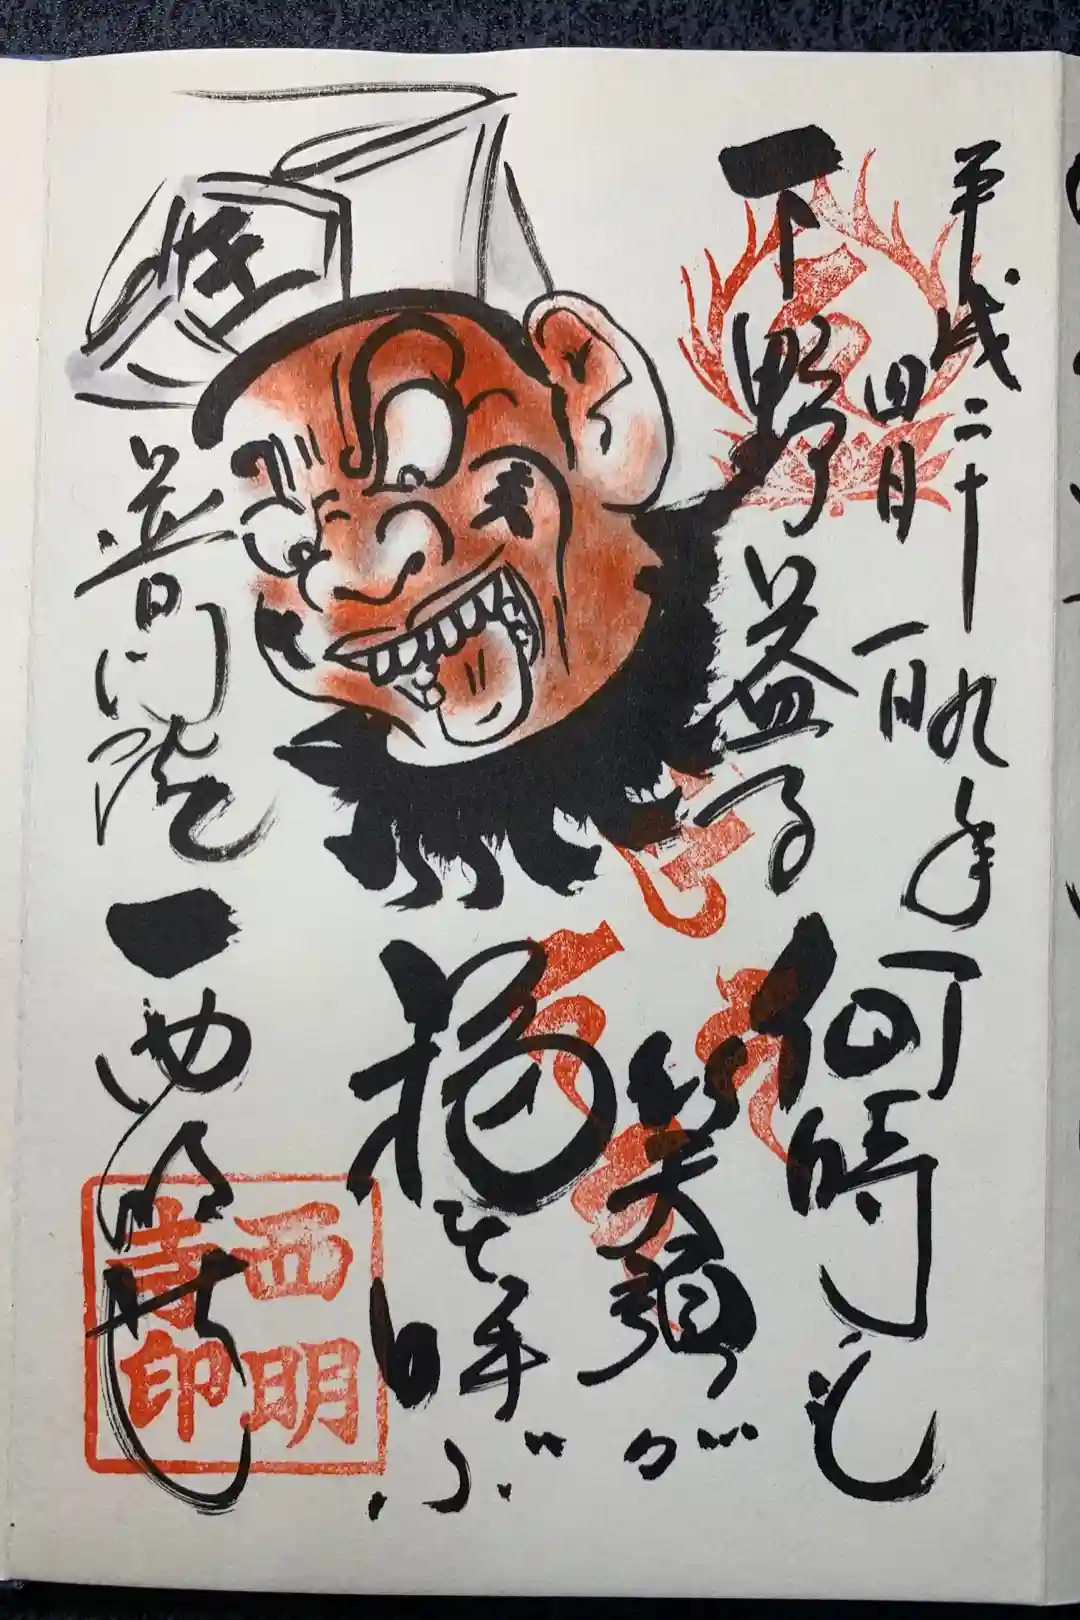 平成二十九年
四月一日
下野益子
何時も
笑顔が
福を呼ぶ
普門院
西明寺
西明
寺印